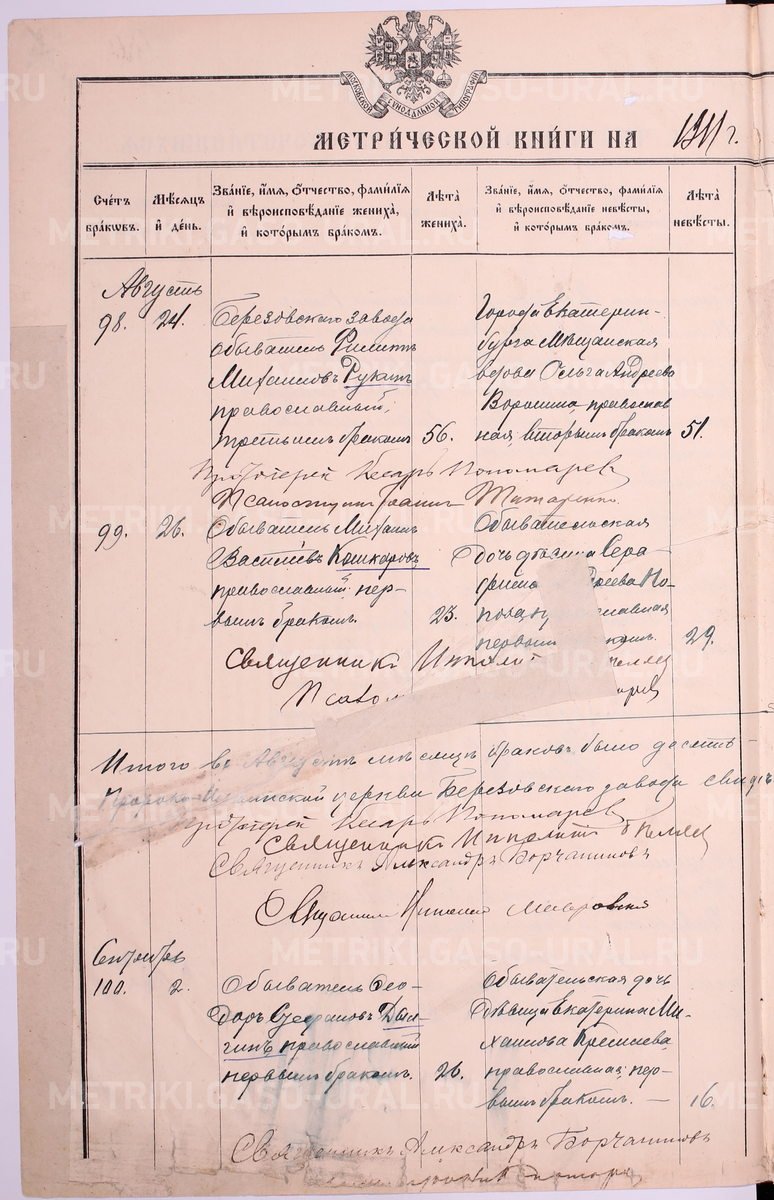 МОСКОВСКОЙ СѴНОДАЛЬНОЙ ТИПОГРАФІИ
МЕТРИ́ЧЕСКОЙ КНИ́ГИ НА 1911 г.
Сче́тъ бра́ковъ.
Мѣ́сяцъ и҆ де́нь.
Зва́нїе, и҆́мя, ѻ҆́тчество, фами́лїя и҆ вѣроисповѣ́данїе жениха̀, и҆ кото́рымъ бра́комъ.
Лѣ́та жениха̀.
Зва́нїе, и҆́мя, ѻ҆́тчество, фами́лїя и҆ вѣроисповѣ́данїе невѣ́сты, и҆ кото́рымъ бра́комъ.
Лѣ́та невѣ́сты.
Августъ
98. 24.
Березовскаго завода
обыватель Филиппъ
Михаиловъ
православный,
третьимъ бракомъ 56.
Города Екатерин-
бурга Мѣщанская
вдова Ольга Андреева
православ
ная, вторымъ бракомъ 51.
Протоіерей Кесарь Пономаревъ
Псаломщикъ Іоаннъ Титаренко
99. 26.
Обыватель Михаилъ
Васильевъ Кошкаровъ
православный пер-
вымъ бракомъ. 23.
Обывательская
дочь дѣвица Сера-
фима
славная
первымъ 29.
Священникъ
Итого въ Августѣ мѣсяцѣ браковъ было десять
Пророко-Ильинской церкви Березовскаго завода свидѣ
Протоіерей Кесарь Пономаревъ
Священникъ Ипполитъ
Священникъ Александръ Борчаниновъ
Сентябрь
100. 2.
Обыватель Ѳео-
доръ Стефановъ
православный
первымъ бракомъ. 26.
Обывательская дочь
дѣвица Екатерина Ми-
хаилова
православная, пер-
вымъ бракомъ. — 16.
Священникъ Александръ Борчаниновъ
METRIKI.GASO-URAL.RU